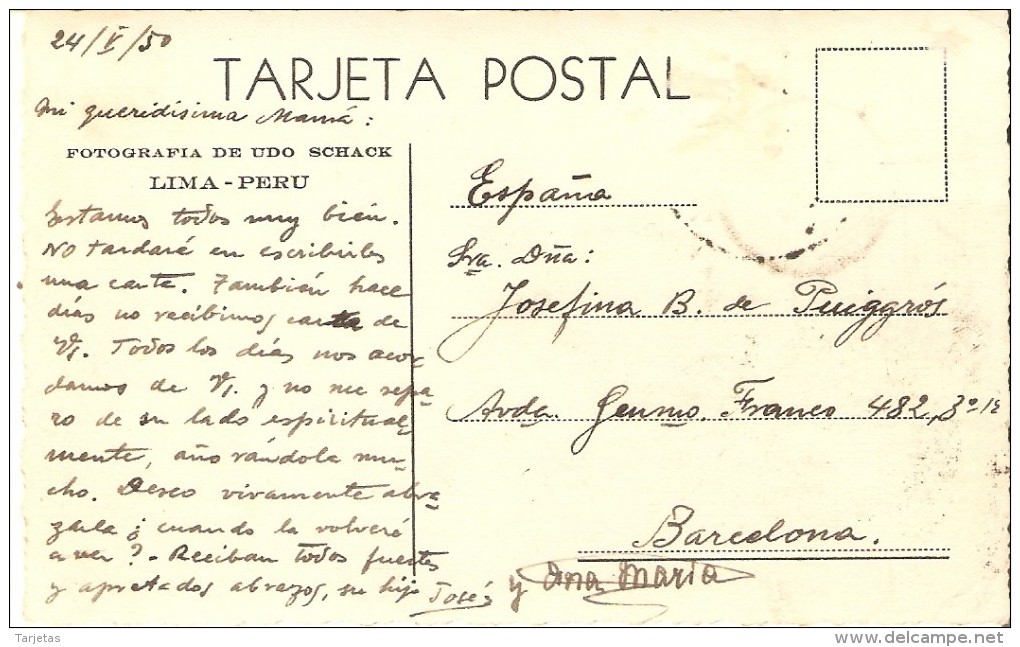 24/V/50
TARJETA POSTAL
Mi queridísima Mamá:
FOTOGRAFIA DE UDO SCHACK
LIMA - PERU
Estamos todos muy bien.
No tardaré en escribirles
una carta. También hace
días no recibimos carta de
V. Todos los días nos acor-
damos de V. y no me sepa-
ro de su lado espiritual-
mente, añorándola mu-
cho. Deseo vivamente abra-
zarla ¿cuando la volveré
a ver? - Reciban todos fuertes
y apretados abrazos, su hijo José y Ana Maria
España
Sra. Dña:
Josefina B. de Puiggrós
Avda. Genmo. Franco 482, 3º 1ª
Barcelona.
Tarjetas
www.delcampe.net